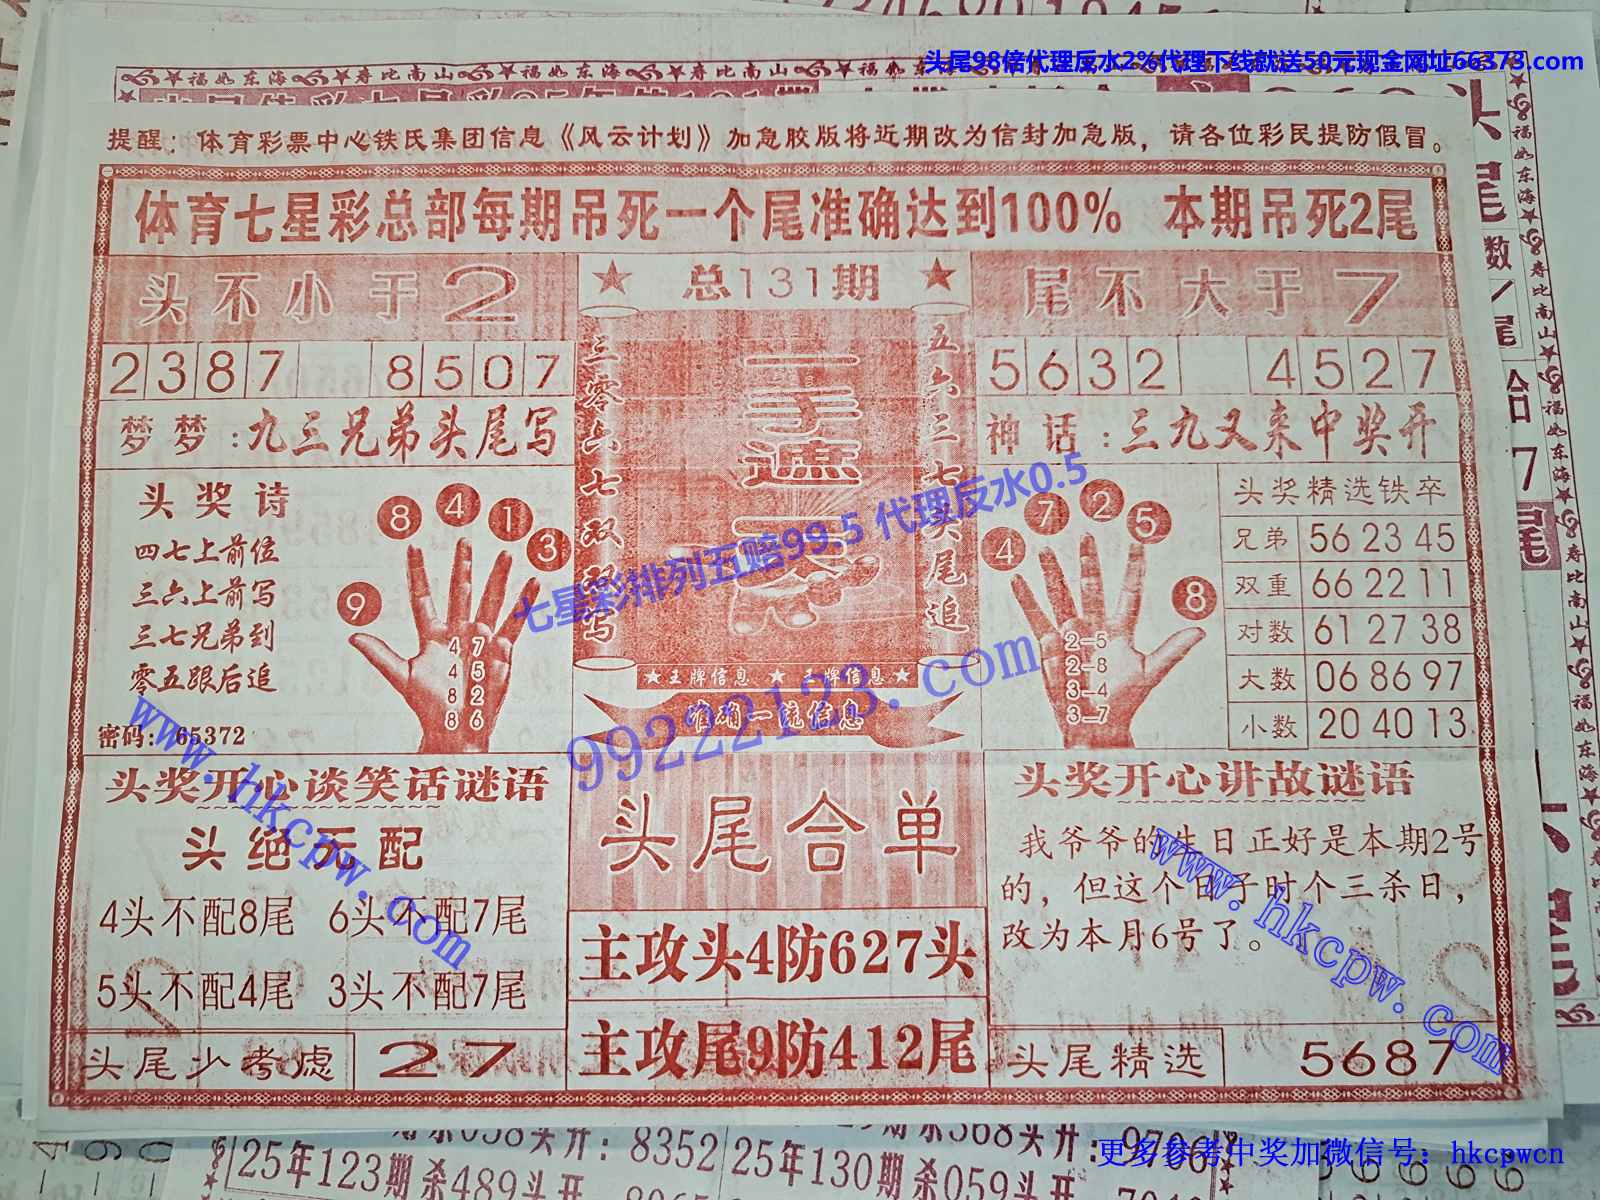 头尾98倍代理反水2%代理下线就送50元现金网址66373.com
福如东海 寿比南山 福如东海 寿比南山 福如东海
提醒：体育彩票中心铁氏集团信息《风云计划》加急胶版将近期改为信封加急版，请各位彩民提防假冒。
体育七星彩总部每期吊死一个尾准确达到100% 本期吊死2尾
头不小于2
总131期
尾不大于7
2387 8507
5632 4527
梦梦：九三兄弟头尾写
神话：三九又来中奖开
三零六七双双写
一手遮天
五六三七头尾追
头奖诗
四七上前位
三六上前写
三七兄弟到
零五跟后追
密码：65372
9 8 4 1 3
4 7
4 5
8 2
8 6
4 7 2 5 8
2-5
2-8
3-4
3-7
头奖精选铁卒
兄弟 56 23 45
双重 66 22 11
对数 61 27 38
大数 06 86 97
小数 20 40 13
王牌信息 王牌信息
准确一统信息
七星彩排列五赔99.5 代理反水0.5
99222123.com
www.hkcpw.com
头奖开心谈笑话谜语
头绝无配
4头不配8尾 6头不配7尾
5头不配4尾 3头不配7尾
头尾少考虑 27
头尾合单
主攻头4防627头
主攻尾9防412尾
头奖开心讲故谜语
我爷爷的生日正好是本期2号
的，但这个日子时个三杀日，
改为本月6号了。
www.hkcpw.com
头尾精选 5687
头开：8352
368头开：9706
25年123期杀489头开
25年130期杀059头开
更多参考中奖加微信号：hkcpwcn